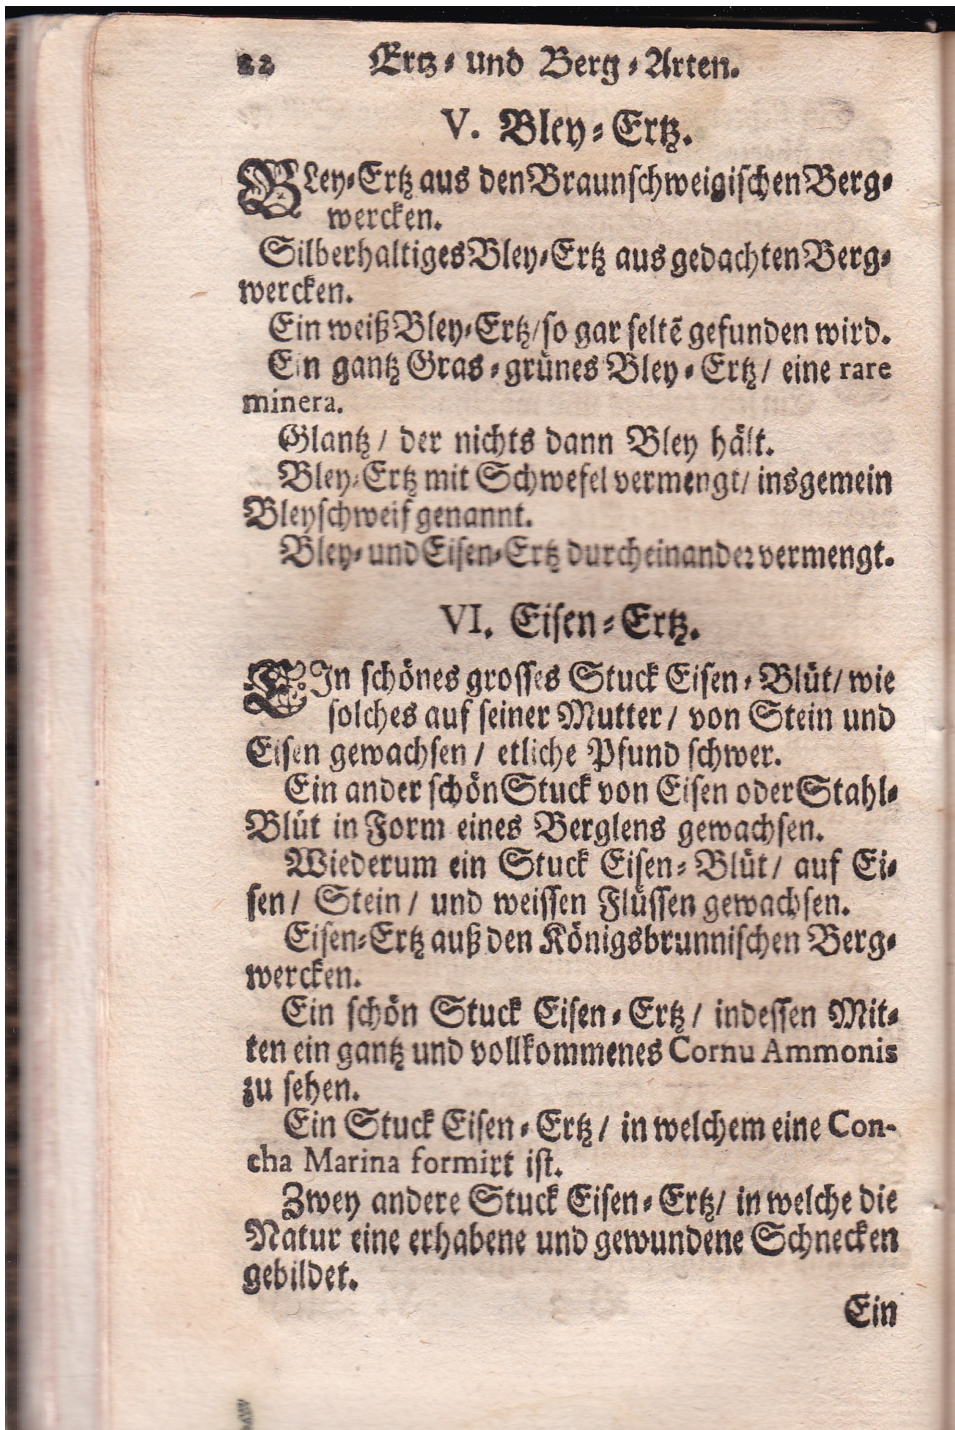 22 Ertz- und Berg-Arten.
V. Bley-Ertz.
BLey-Ertz aus den Braunschweigischen Berg-
wercken.
Silberhaltiges Bley-Ertz aus gedachten Berg-
wercken.
Ein weiß Bley-Ertz/ so gar seltē gefunden wird.
Ein gantz Gras-grünes Bley-Ertz/ eine rare
minera.
Glantz/ der nichts dann Bley hält.
Bley-Ertz mit Schwefel vermengt/ insgemein
Bleyschweif genannt.
Bley- und Eisen-Ertz durcheinander vermengt.
VI. Eisen-Ertz.
EIn schönes grosses Stuck Eisen-Blüt/ wie
solches auf seiner Mutter/ von Stein und
Eisen gewachsen/ etliche Pfund schwer.
Ein ander schön Stuck von Eisen oder Stahl-
Blüt in Form eines Berglens gewachsen.
Wiederum ein Stuck Eisen-Blüt/ auf Ei-
sen/ Stein/ und weissen Flüssen gewachsen.
Eisen-Ertz auß den Königsbrunnischen Berg-
wercken.
Ein schön Stuck Eisen-Ertz/ indessen Mit-
ten ein gantz und vollkommenes Cornu Ammonis
zu sehen.
Ein Stuck Eisen-Ertz/ in welchem eine Con-
cha Marina formirt ist.
Zwey andere Stuck Eisen-Ertz/ in welche die
Natur eine erhabene und gewundene Schnecken
gebildet.
Ein